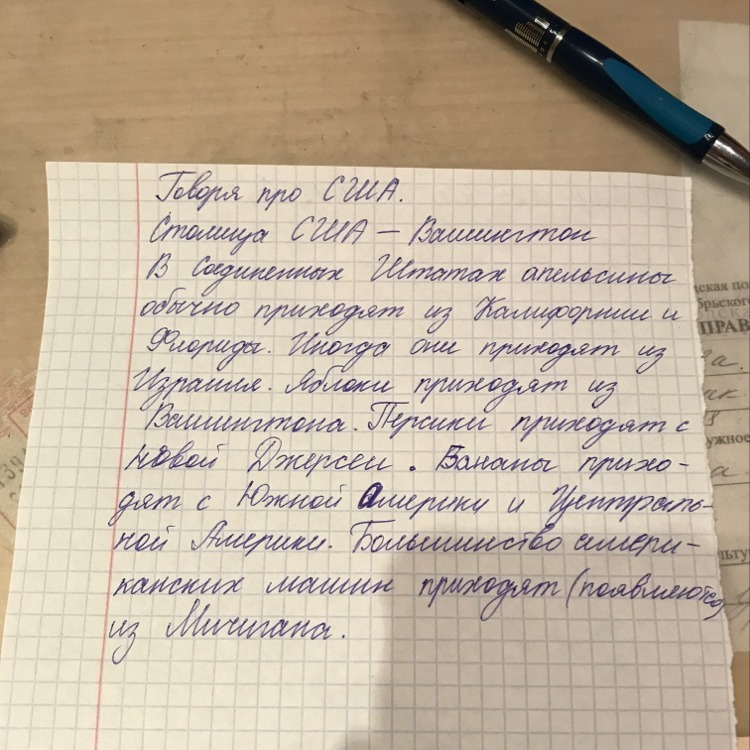 Говоря про США.
Столица США – Вашингтон
В Соединенных Штатах апельсины
обычно приходят из Калифорнии и
Флориды. Иногда они приходят из
Израиля. Яблоки приходят из
Вашингтона. Персики приходят с
новой Джерсеи. Бананы прихо-
дят с Южной Америки и Централь-
ной Америки. Большинство амери-
канских машин приходят (появляются)
из Мичигана.
ская по
брьского
ПРАВ
ужное
льту